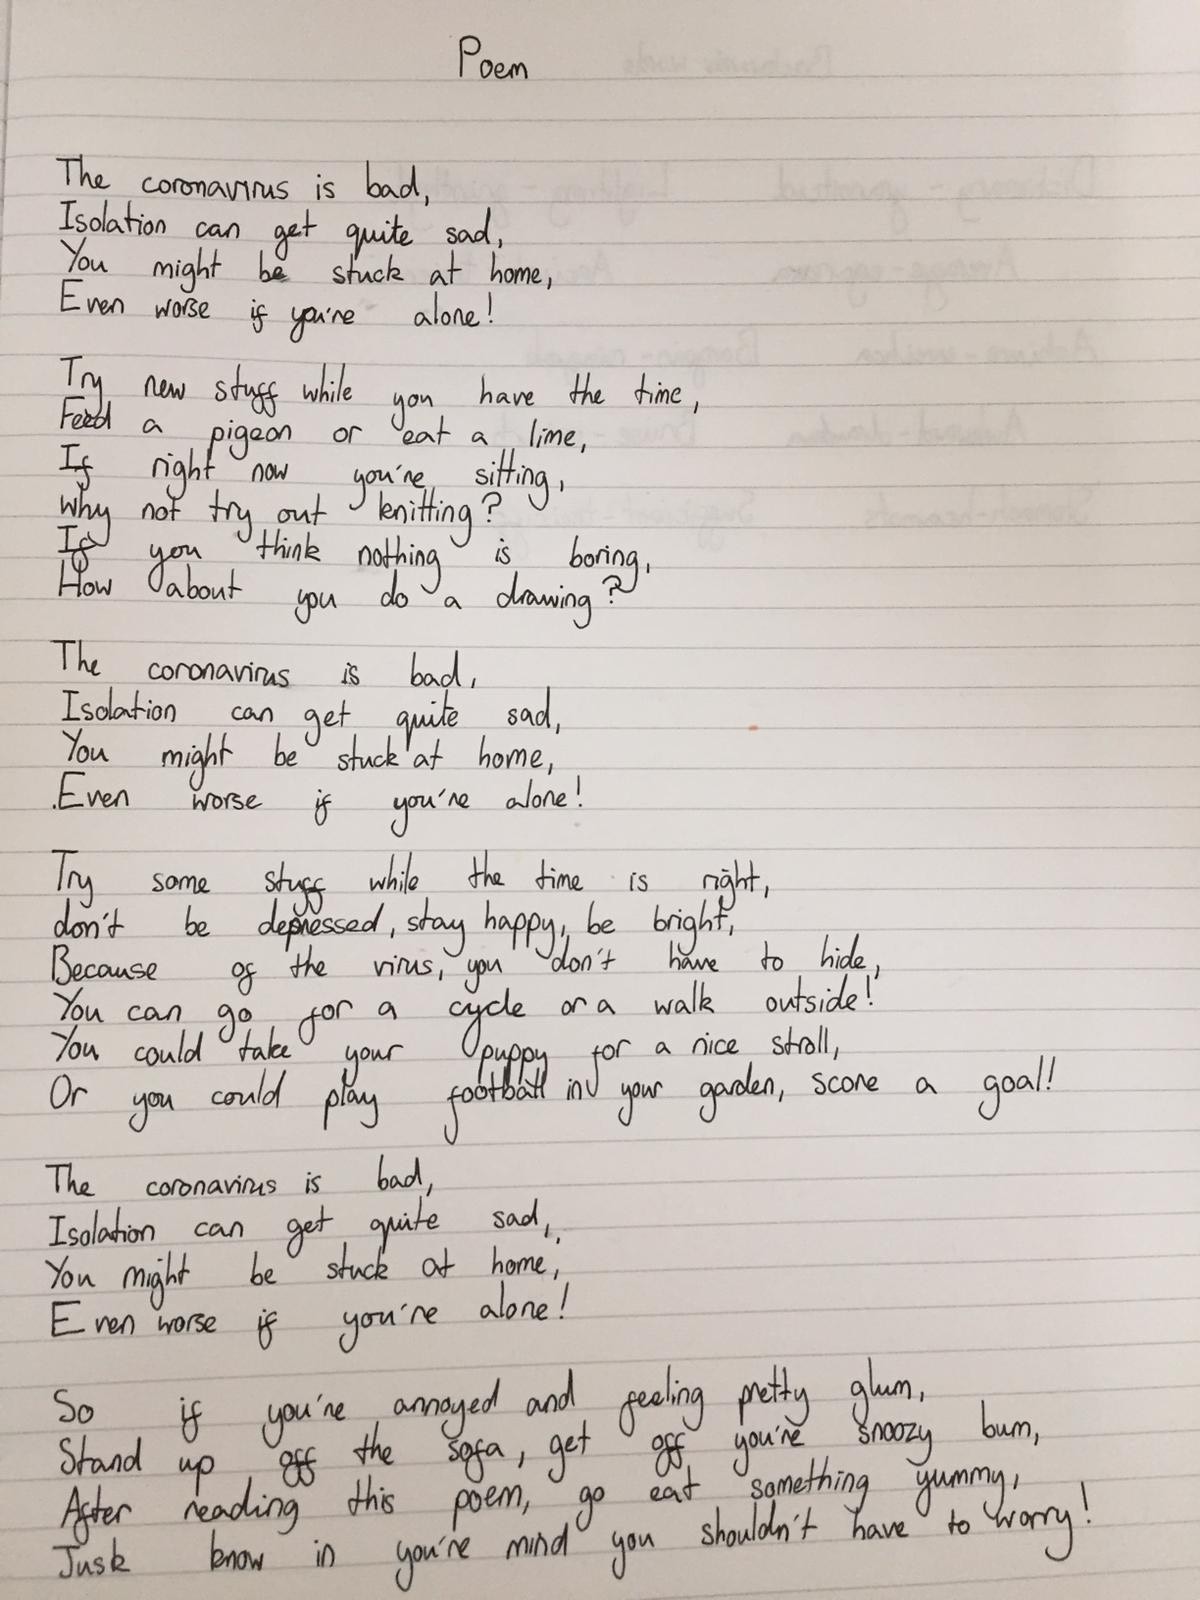 Poem
The coronavirus is bad,
Isolation can get quite sad,
You might be stuck at home,
Even worse if you're alone!
Try new stuff while you have the time,
Feed a pigeon or eat a lime,
If right now you're sitting,
Why not try out knitting?
If you think nothing is boring,
How about you do a drawing?
The coronavirus is bad,
Isolation can get quite sad,
You might be stuck at home,
Even worse if you're alone!
Try some stuff while the time is right,
don't be depressed, stay happy, be bright,
Because of the virus, you don't have to hide,
You can go for a cycle or a walk outside!
You could take your puppy for a nice stroll,
Or you could play football in your garden, score a goal!
The coronavirus is bad,
Isolation can get quite sad,
You might be stuck at home,
Even worse if you're alone!
So if you're annoyed and feeling pretty glum,
Stand up off the sofa, get off you're snoozy bum,
After reading this poem, go eat something yummy,
Just know in you're mind you shouldn't have to worry!